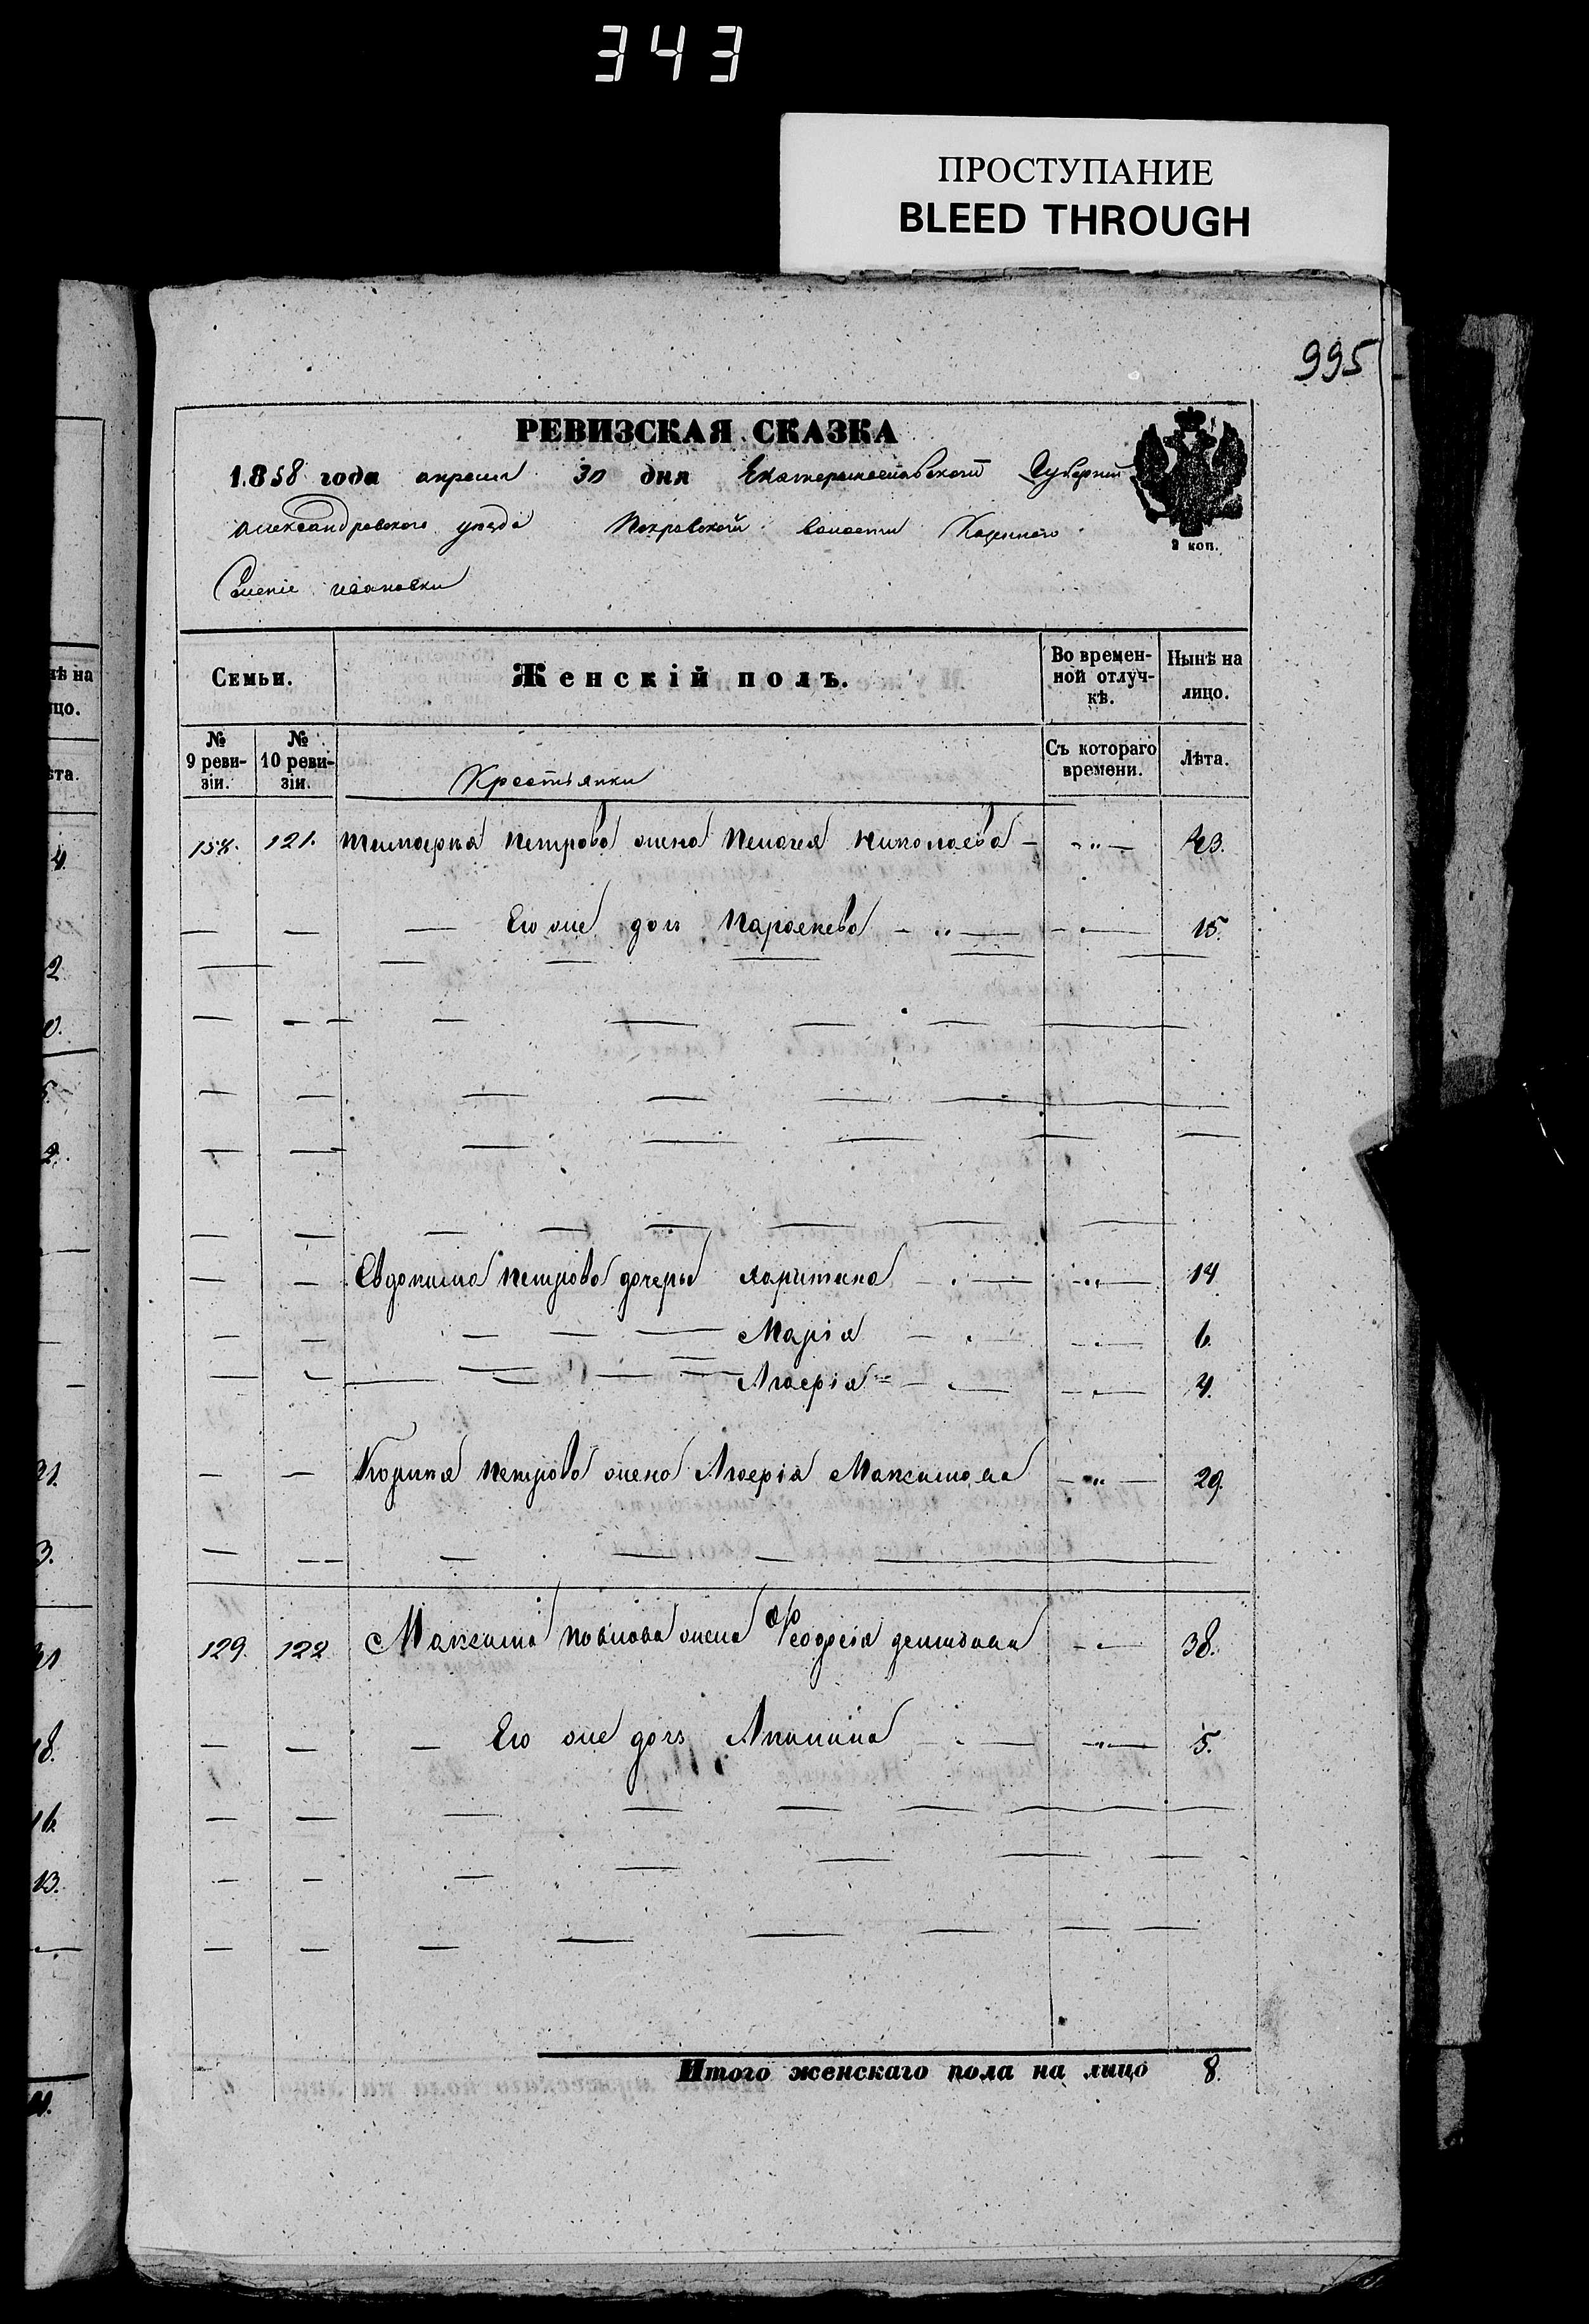 343
ПРОСТУПАНИЕ
BLEED THROUGH
995
РЕВИЗСКАЯ СКАЗКА
1858 года апреля 30 дня Екатеринославской Губернии
Александровского уезда Покровской волости Казенного
Селенiе Ивановки
2 коп.
Семьи. Женскiй полъ. Во временной отлучкѣ. Нынѣ на лицо.
№ 9 ревизiи. № 10 ревизiи. Крестьянки Съ котораго времени. Лѣта.
121. Петрова жена Пелагея Николаева 43.
Его же дочь Парасκева 15.
Евдокима Петрова дочери Харитина 14
Марiя 6.
Агафiя 4.
Петрова жена Агафiя Максимова 29.
129. 122 Максима Павлова жена Феодосiя Демидова 38.
Его же дочь Акилина 5.
Итого женскаго пола на лицо 8.